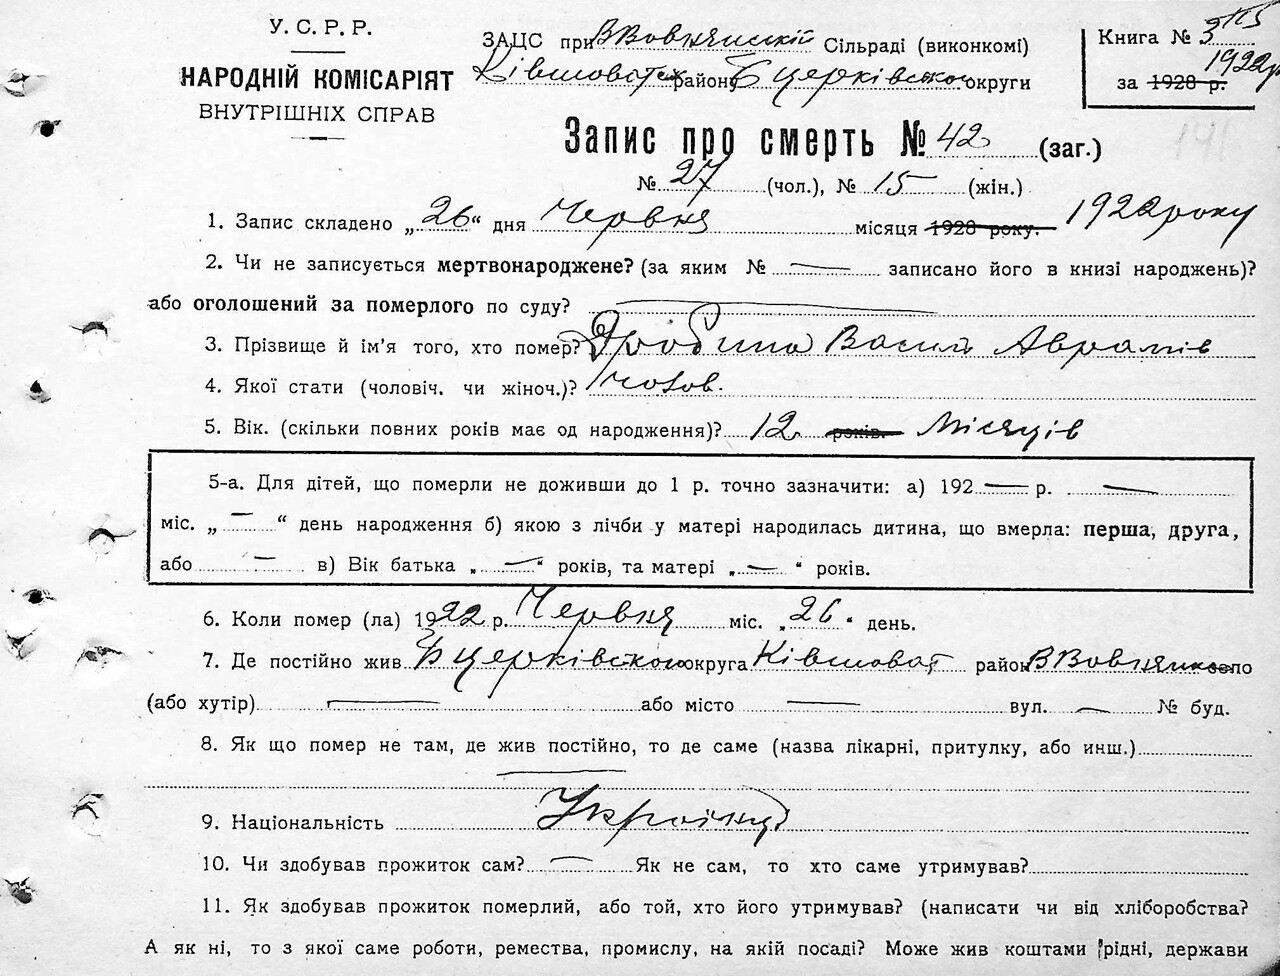 У. С. Р. Р.
НАРОДНІЙ КОМІСАРІЯТ
ВНУТРІШНІХ СПРАВ
ЗАЦС при ВВовнянській Сільраді (виконкомі)
Ківшоват району Бцерківської округи
Книга № 3
за 1928 р. 1922р
Запис про смерть № 42 (заг.)
№ 27 (чол.), № 15 (жін.)
1. Запис складено „26“ дня Червня місяця 1928 року. 1922 року
2. Чи не записується мертвонароджене? (за яким № — записано його в книзі народжень)?
або оголошений за померлого по суду? —
3. Прізвище й ім'я того, хто помер? Дробина Василь Аврамів
4. Якої стати (чоловіч. чи жіноч.)? чолов.
5. Вік. (скільки повних років має од народження)? 12 років. Місяців
5-а. Для дітей, що померли не доживши до 1 р. точно зазначити: а) 192 — р. —
міс. „ — “ день народження б) якою з лічби у матері народилась дитина, що вмерла: перша, друга,
або — в) Вік батька „ — “ років, та матері „ — “ років.
6. Коли помер (ла) 1922 р. Червня міс. „26“ день.
7. Де постійно жив Бцерківського округа Ківшоват район ВВовнянка село
(або хутір) — або місто — вул. — № буд.
8. Як що помер не там, де жив постійно, то де саме (назва лікарні, притулку, або инш.)
—
9. Національність Українці
10. Чи здобував прожиток сам? — Як не сам, то хто саме утримував?
11. Як здобував прожиток померлий, або той, хто його утримував? (написати чи від хліборобства?
А як ні, то з якої саме роботи, ремества, промислу, на якій посаді? Може жив коштами рідні, держави